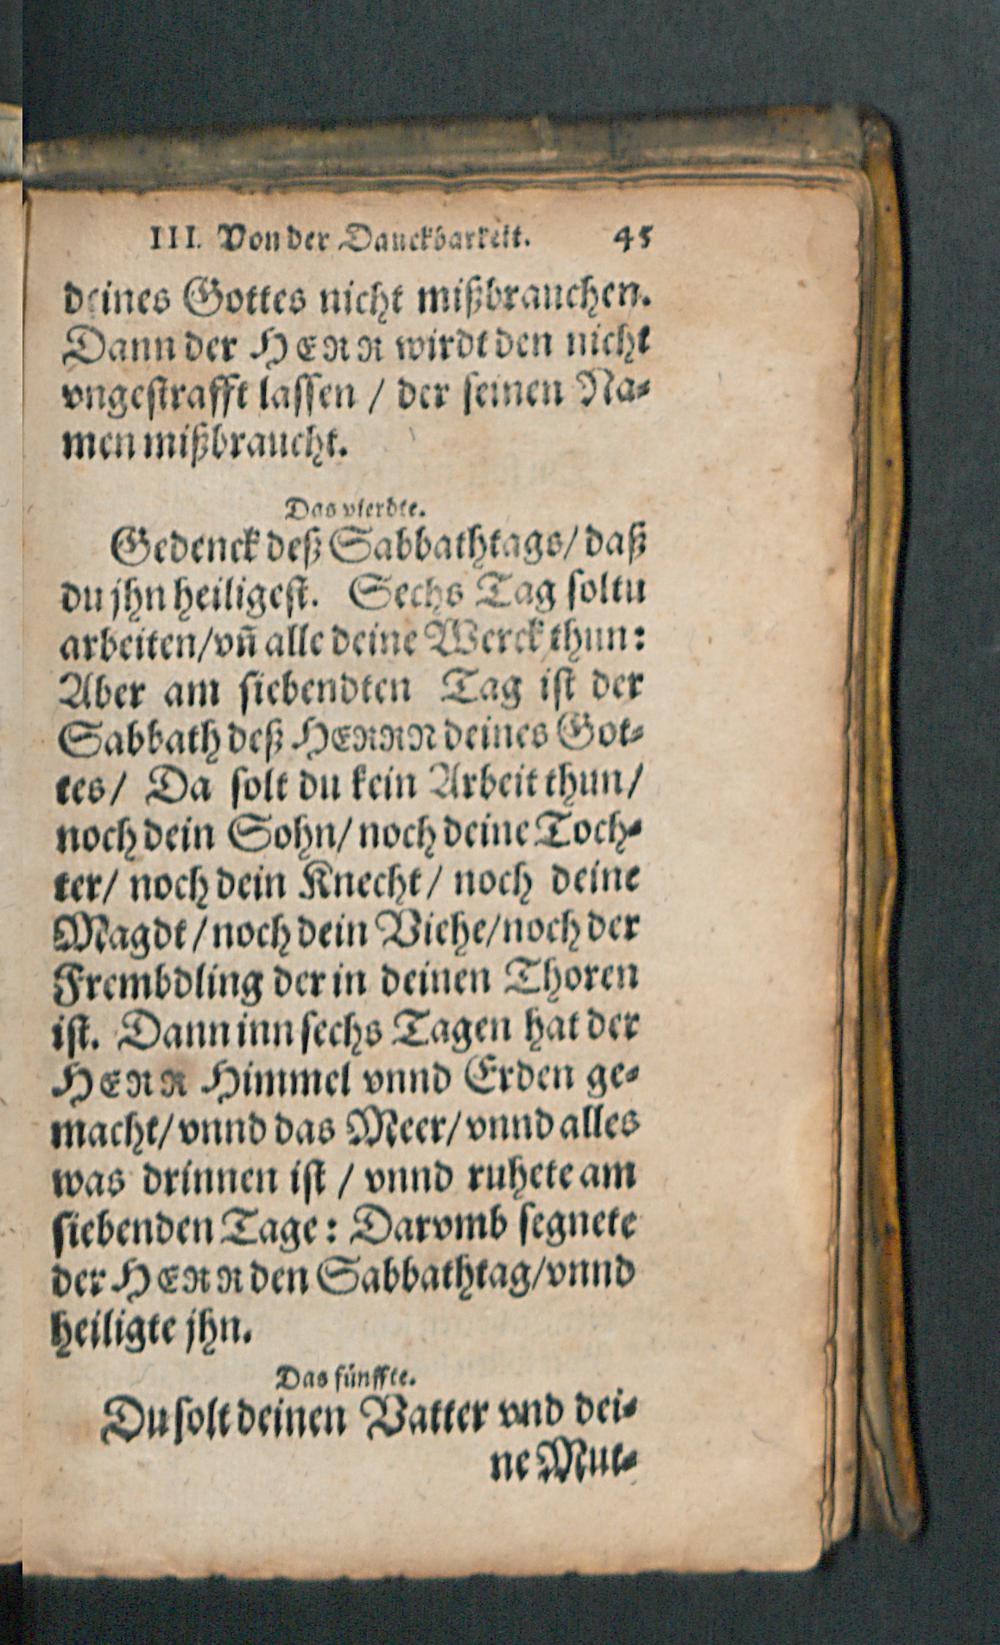 III. Von der Danckbarkeit. 45
deines Gottes nicht mißbrauchen.
Dann der HERR wirdt den nicht
vngestrafft lassen / der seinen Na-
men mißbraucht.
Das vierdte.
Gedenck deß Sabbathtags/ daß
du jhn heiligest. Sechs Tag soltu
arbeiten/ vñ alle deine Werck thun:
Aber am siebendten Tag ist der
Sabbath deß HERRN deines Got-
tes/ Da solt du kein Arbeit thun/
noch dein Sohn/ noch deine Toch-
ter/ noch dein Knecht/ noch deine
Magdt/ noch dein Viehe/ noch der
Frembdling der in deinen Thoren
ist. Dann inn sechs Tagen hat der
HERR Himmel vnnd Erden ge-
macht/ vnnd das Meer/ vnnd alles
was drinnen ist / vnnd ruhete am
siebenden Tage: Darvmb segnete
der HERR den Sabbathtag/ vnnd
heiligte jhn.
Das fünffte.
Du solt deinen Vatter vnd dei-
ne Mut-